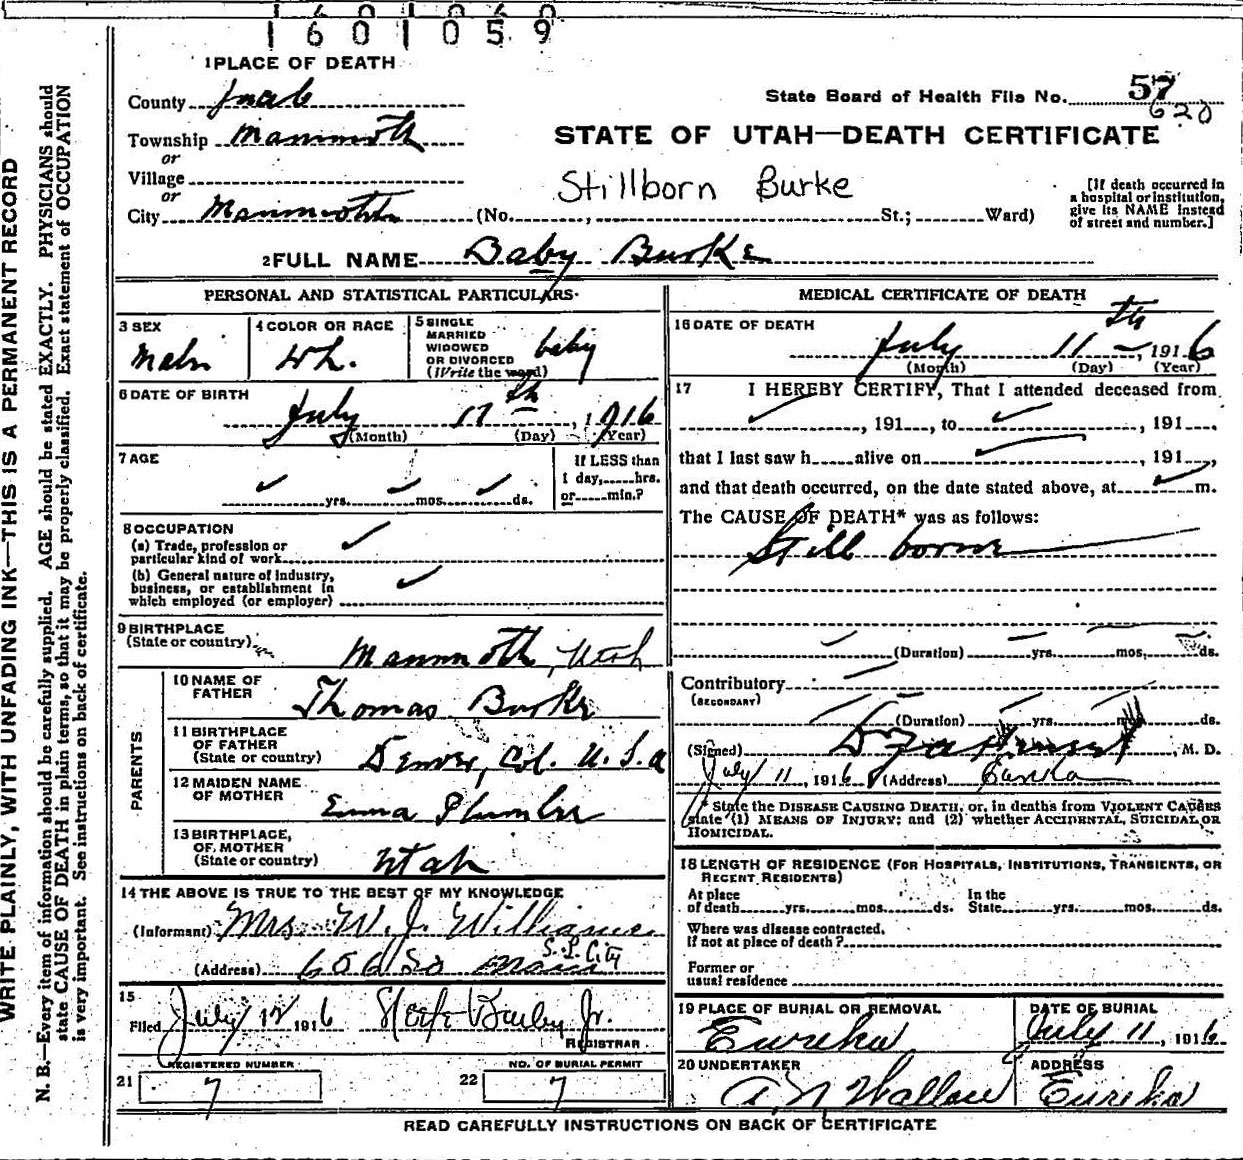 1601059
1 PLACE OF DEATH
County Juab
State Board of Health File No. 57
620
Township Mammoth
STATE OF UTAH—DEATH CERTIFICATE
or
Village
Stillborn Burke
or
City Mammoth (No. , St.; Ward)
[If death occurred in
a hospital or institution,
give its NAME instead
of street and number.]
2 FULL NAME Baby Burke
PERSONAL AND STATISTICAL PARTICULARS
3 SEX
Male
4 COLOR OR RACE
Wh.
5 SINGLE
MARRIED
WIDOWED
OR DIVORCED
(Write the word)
baby
6 DATE OF BIRTH
July 11th, 1916
(Month) (Day) (Year)
7 AGE
yrs. mos. ds.
If LESS than
1 day, hrs.
or min.?
8 OCCUPATION
(a) Trade, profession or
particular kind of work
(b) General nature of industry,
business, or establishment in
which employed (or employer)
9 BIRTHPLACE
(State or country)
Mammoth, Utah
PARENTS
10 NAME OF
FATHER
Thomas Burke
11 BIRTHPLACE
OF FATHER
(State or country)
Denver, Col. U.S.a
12 MAIDEN NAME
OF MOTHER
Emma
13 BIRTHPLACE,
OF MOTHER
(State or country)
Utah
14 THE ABOVE IS TRUE TO THE BEST OF MY KNOWLEDGE
(Informant) Mrs. W. J. Williams
S. L. City
(Address) 606 So Main
15
Filed July 12 1916
Jr.
REGISTRAR
REGISTERED NUMBER
21 7
NO. OF BURIAL PERMIT
22 7
MEDICAL CERTIFICATE OF DEATH
16 DATE OF DEATH
July 11th, 1916
(Month) (Day) (Year)
17 I HEREBY CERTIFY, That I attended deceased from
, 191 , to , 191 ,
that I last saw h alive on , 191 ,
and that death occurred, on the date stated above, at m.
The CAUSE OF DEATH* was as follows:
Still borne
(Duration) yrs. mos. ds.
Contributory
(SECONDARY)
(Duration) yrs. mos. ds.
(Signed) , M. D.
July 11, 1916 (Address) Eureka
* State the DISEASE CAUSING DEATH, or, in deaths from VIOLENT CAUSES
state (1) MEANS OF INJURY; and (2) whether ACCIDENTAL, SUICIDAL, OR
HOMICIDAL.
18 LENGTH OF RESIDENCE (FOR HOSPITALS, INSTITUTIONS, TRANSIENTS, OR
RECENT RESIDENTS)
At place
of death yrs. mos. ds.
In the
State yrs. mos. ds.
Where was disease contracted,
If not at place of death?
Former or
usual residence
19 PLACE OF BURIAL OR REMOVAL
Eureka
DATE OF BURIAL
July 11, 1916
20 UNDERTAKER
A. N. Wallace
ADDRESS
Eureka
READ CAREFULLY INSTRUCTIONS ON BACK OF CERTIFICATE
WRITE PLAINLY, WITH UNFADING INK—THIS IS A PERMANENT RECORD
N. B.—Every item of information should be carefully supplied. AGE should be stated EXACTLY. PHYSICIANS should
state CAUSE OF DEATH in plain terms, so that it may be properly classified. Exact statement of OCCUPATION
is very important. See instructions on back of certificate.